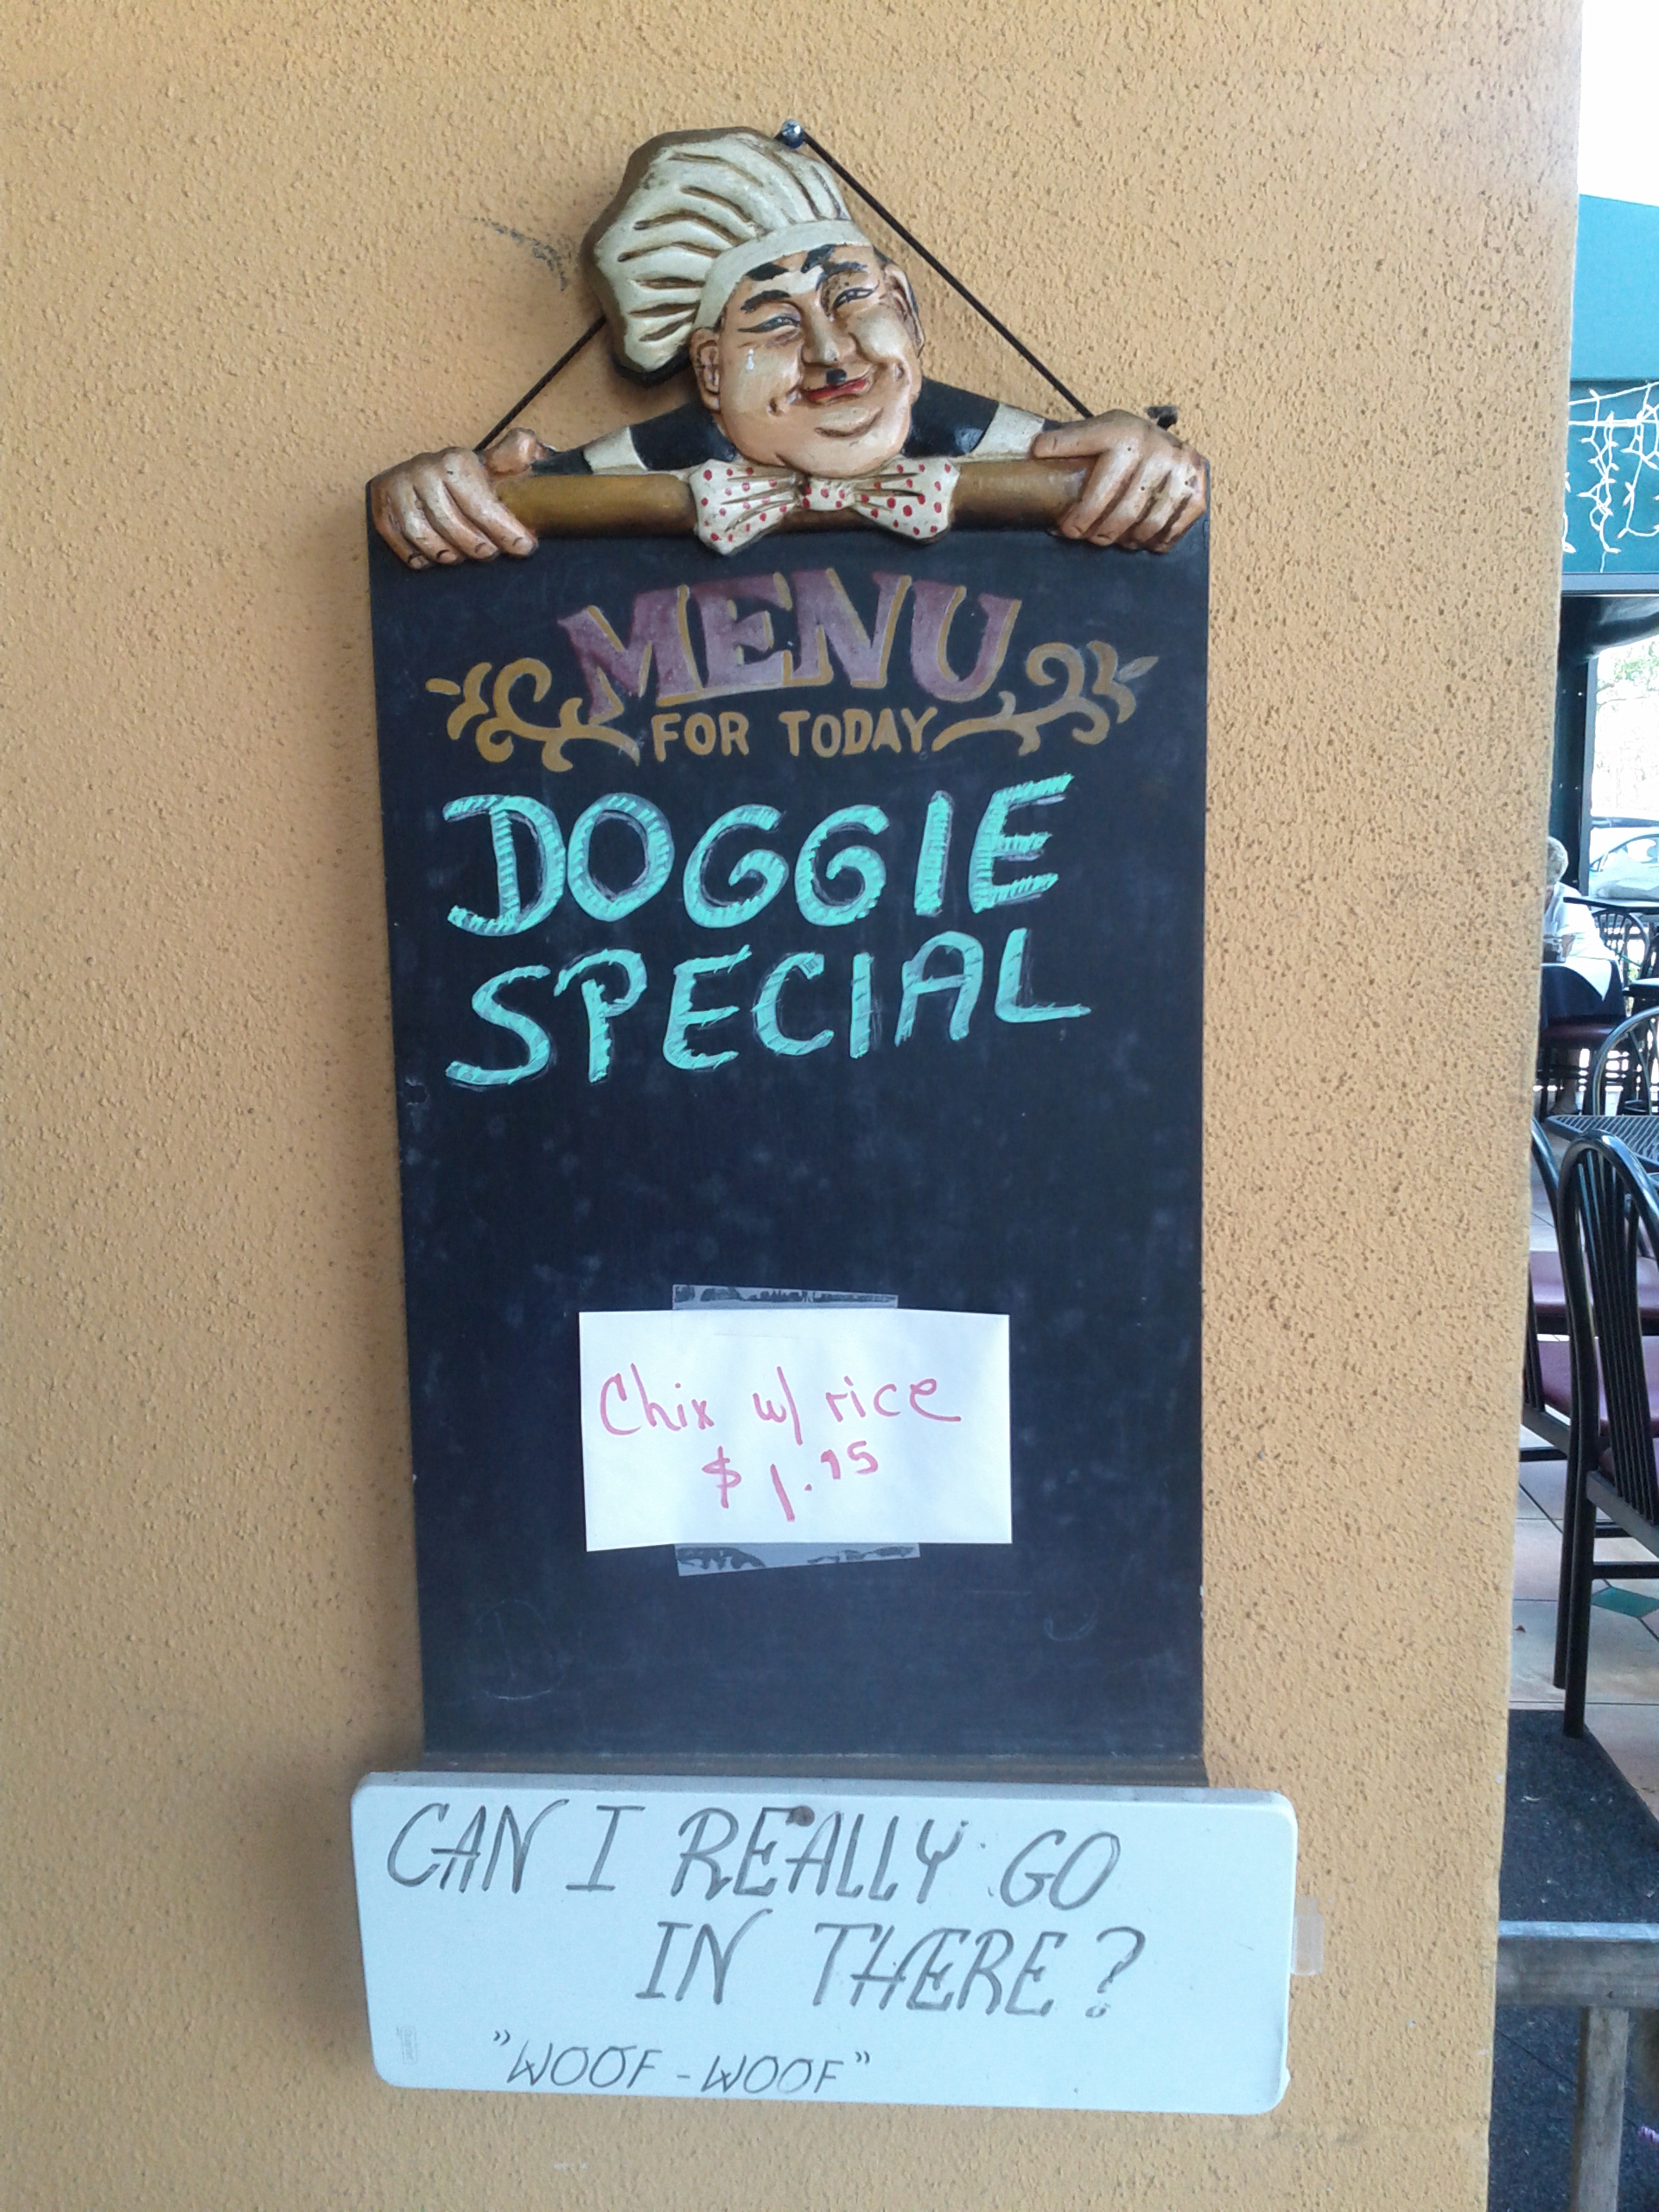 MENU
FOR TODAY
DOGGIE
SPECIAL
Chix w/ rice
$1.95
CAN I REALLY GO
IN THERE?
"WOOF-WOOF"